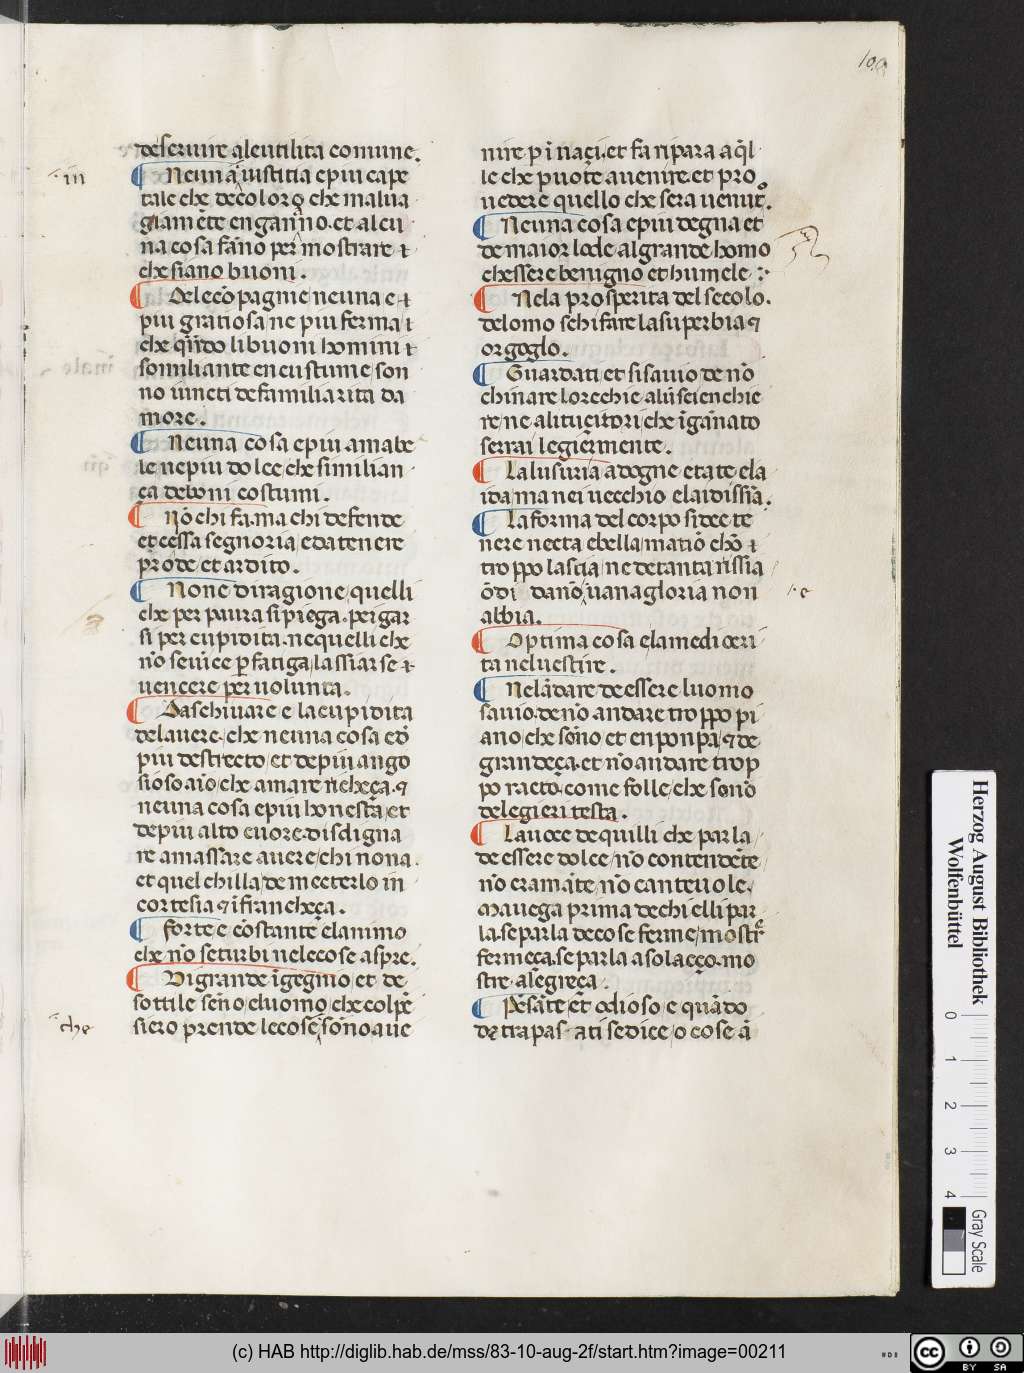 109
de seruire aleutilita comune.
in
¶ Neuna iustitia e piu cape
tale che de coloro che malua
giamēte engannno. et alcu
na cosa fāno per mostrare
che siano buoni.
¶ Dele cōpagnie neuna e
piu gratiosa ne piu ferma
che quādo li buoni homini
somiliante en custume son
no iuncti de familiarita da
more.
¶ Neuna cosa e piu amabe
le ne piu dolce, che similian
ça de boni costumi.
¶ Nō chi fa. ma chi defende
et cessa segnoria, e da tenere
prode, et ardito.
¶ Non e di ragione, quelli
che per paura si piega. per gar
si per cupidita. ne quelli che
nō se uīce p fatiga, lassiarse
uencere per uolunta.
¶ Da schiuare e la cupidita
delauere. che neuna cosa e
piu destrecto, et de piu ango
sioso aīo, che amare richeça.
neuna cosa e piu honesta, et
de piu alto cuore. disdigna
re amassare auere, chi non a.
et quel chilla, de mecterlo in
cortesia ⁊ ī francheça.
¶ Forte e costante e lanimo
che nō se turbi nele cose aspre.
¶ Di grande īgegnio, et de
sottile senno e luomo, che col pē
che
siero prende le cose, sōno aue
nire. p īnaçi. et fa ripara aql
le che puote auenire. et pro
uedere quello che sera uenut.
¶ Neuna cosa e piu degna et
de maior lode al grande homo
chessere benigno et humele
¶ Nela prosperita del secolo.
delomo schifare la superbia ⁊
orgoglo.
¶ Guardati et si sauio de nō
chinare lorecchie a lusenchie
re, ne alitucitori, che īgānato
serrai legiermente.
¶ La lusuria ad ogne etate, e la
ida, ma nei uecchio e laidissīa.
¶ La forma del corpo si dee te
nere necta e bella, ma tiō chō
troppo lascia, ne de tanta rissia
ōdi dano, uana gloria non
e
abbia.
¶ Optima cosa e la mediocri
ta nel uestire.
¶ Nelādare de essere luomo
sauio. de nō andare troppo pi
ano, che sōno et en ponpa, ⁊ de
grandeça. et nō andare trop
po racto, come folle, che sonō
de legieri testa.
¶ La uoce de quilli che parla,
de essere dolce, nō contendēte
nō cramāte, nō canteuole,
Ma uega prima de chi elli par
la. se parla de cose ferme, mostr
fermeça. se parla a solacço. mo
stre. alegreça.
¶ Pesāte, et odioso, e quādo
de trapas ati se dice, o cose ā
Herzog August Bibliothek
Wolfenbüttel
0
1
2
3
4
Gray Scale
(c) HAB http://diglib.hab.de/mss/83-10-aug-2f/start.htm?image=00211
cc
BY SA